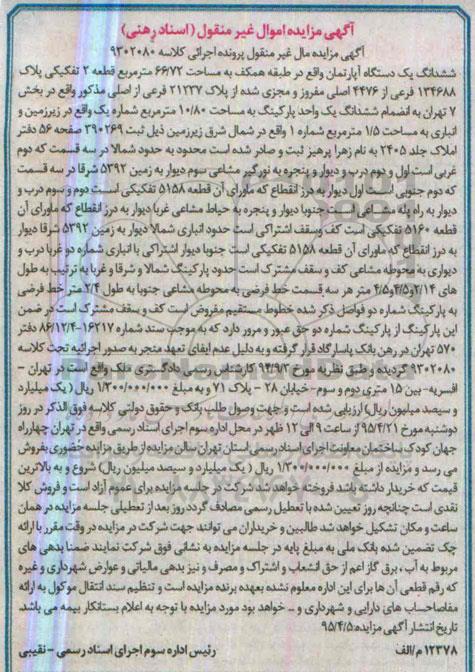 آگهی مزایده اموال غیر منقول (اسناد رهنی)
آگهی مزایده مال غیر منقول پرونده اجرائی کلاسه ۹۳۰۲۰۸۰
ششدانگ یک دستگاه آپارتمان واقع در طبقه همکف به مساحت ۶۶/۷۲ مترمربع قطعه ۲ تفکیکی پلاک
۱۳۴۶۸۸ فرعی از ۴۴۷۶ اصلی مفروز و مجزی شده از پلاک ۲۱۲۳۷ فرعی از اصلی مذکور واقع در بخش
۷ تهران به انضمام ششدانگ یک واحد پارکینگ به مساحت ۱۰/۸۰ مترمربع شماره یک واقع در زیرزمین و
انباری به مساحت ۱/۵ مترمربع شماره ۱ واقع در شمال شرق زیرزمین ذیل ثبت ۳۹۰۲۶۹ صفحه ۵۶ دفتر
املاک جلد ۲۴۰۵ به نام زهرا پرهیز ثبت و صادر شده است محدود به حدود شمالا در سه قسمت که دوم
غربی است اول و دوم درب و دیوار و پنجره به نورگیر مشاعی سوم دیوار به زمین ۵۳۹۲ شرقا در سه قسمت
که دوم جنوبی است اول دیوار به درز انقطاع که ماورای آن قطعه ۵۱۵۸ تفکیکی است دوم و سوم درب و
دیوار به راه پله مشاعی است جنوبا دیوار و پنجره به حیاط مشاعی غربا دیوار به درز انقطاع که ماورای آن
قطعه ۵۱۶۰ تفکیکی است کف وسقف اشتراکی است حدود انباری شمالا دیوار به زمین ۵۳۹۲ شرقا دیوار
به درز انقطاع که ماورای آن قطعه ۵۱۵۸ تفکیکی است جنوبا دیوار اشتراکی با انباری شماره دو غربا درب و
دیواری به محوطه مشاعی کف و سقف مشترک است حدود پارکینگ شمالا و شرقا و غربا به ترتیب به طول
های ۲/۱۴و۴/۵و۴/۵ متر هر سه قسمت خط فرضی به محوطه مشاعی جنوبا به طول ۲/۴ متر خط فرضی
به پارکینگ شماره دو فواصل ذکر شده خطوط مستقیم مفروض است کف و سقف مشترک است در ضمن
این پارکینگ از پارکینگ شماره دو حق عبور و مرور دارد که به موجب سند شماره ۱۶۲۱۷-۸۶/۱۲/۴ دفتر
۵۷۰ تهران در رهن بانک پاسارگاد قرار گرفته و به دلیل عدم ایفای تعهد منجر به صدور اجرائیه تحت کلاسه
۹۳۰۲۰۸۰ گردیده و طبق نظریه مورخ ۹۴/۹/۳ کارشناس رسمی دادگستری ملک واقع است در تهران -
افسریه- بین ۱۵ متری دوم و سوم- خیابان ۲۸ - پلاک ۷۱ و به مبلغ ۱/۳۰۰/۰۰۰/۰۰۰ ریال ( یک میلیارد
و سیصد میلیون ریال) ارزیابی شده است و جهت وصول طلب بانک و حقوق دولتی کلاسه فوق الذکر در روز
دوشنبه مورخ ۹۵/۴/۲۱ از ساعت ۹ الی ۱۲ ظهر در محل اداره سوم اجرای اسناد رسمی واقع در تهران چهارراه
جهان کودک ساختمان معاونت اجرای اسناد رسمی استان تهران سالن مزایده از طریق مزایده حضوری بفروش
می رسد و مزایده از مبلغ ۱/۳۰۰/۰۰۰/۰۰۰ ریال ( یک میلیارد و سیصد میلیون ریال) شروع و به بالاترین
قیمت که خریدار داشته باشد فروخته خواهد شد شرکت در جلسه مزایده برای عموم آزاد است و فروش کلا
نقدی است چنانچه روز تعیین شده با تعطیل رسمی مصادف گردد روز بعد از تعطیلی جلسه مزایده در همان
ساعت و مکان تشکیل خواهد شد طالبین و خریداران می توانند جهت شرکت در مزایده در وقت مقرر با ارائه
چک تضمین شده بانک ملی به مبلغ پایه در جلسه مزایده به نشانی فوق شرکت نمایند ضمنا بدهی های
مربوط به آب ، برق گاز اعم از حق انشعاب و اشتراک و مصرف و نیز بدهی مالیاتی و عوارض شهرداری و غیره
که رقم قطعی آن ها برای این اداره معلوم نشده بعهده برنده مزایده است و تنظیم سند انتقال موکول به ارائه
مفاصاحساب های دارایی و شهرداری و ... خواهد بود مورد مزایده با توجه به اعلام بستانکار بیمه می باشد.
تاریخ انتشار آگهی مزایده: ۹۵/۴/۵
۱۲۳۷۸ م/الف رئیس اداره سوم اجرای اسناد رسمی - نقیبی